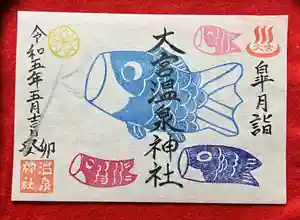 皐月詣
大宮温泉神社
令和五年五月吉日
癸卯
大宮
温泉
神社